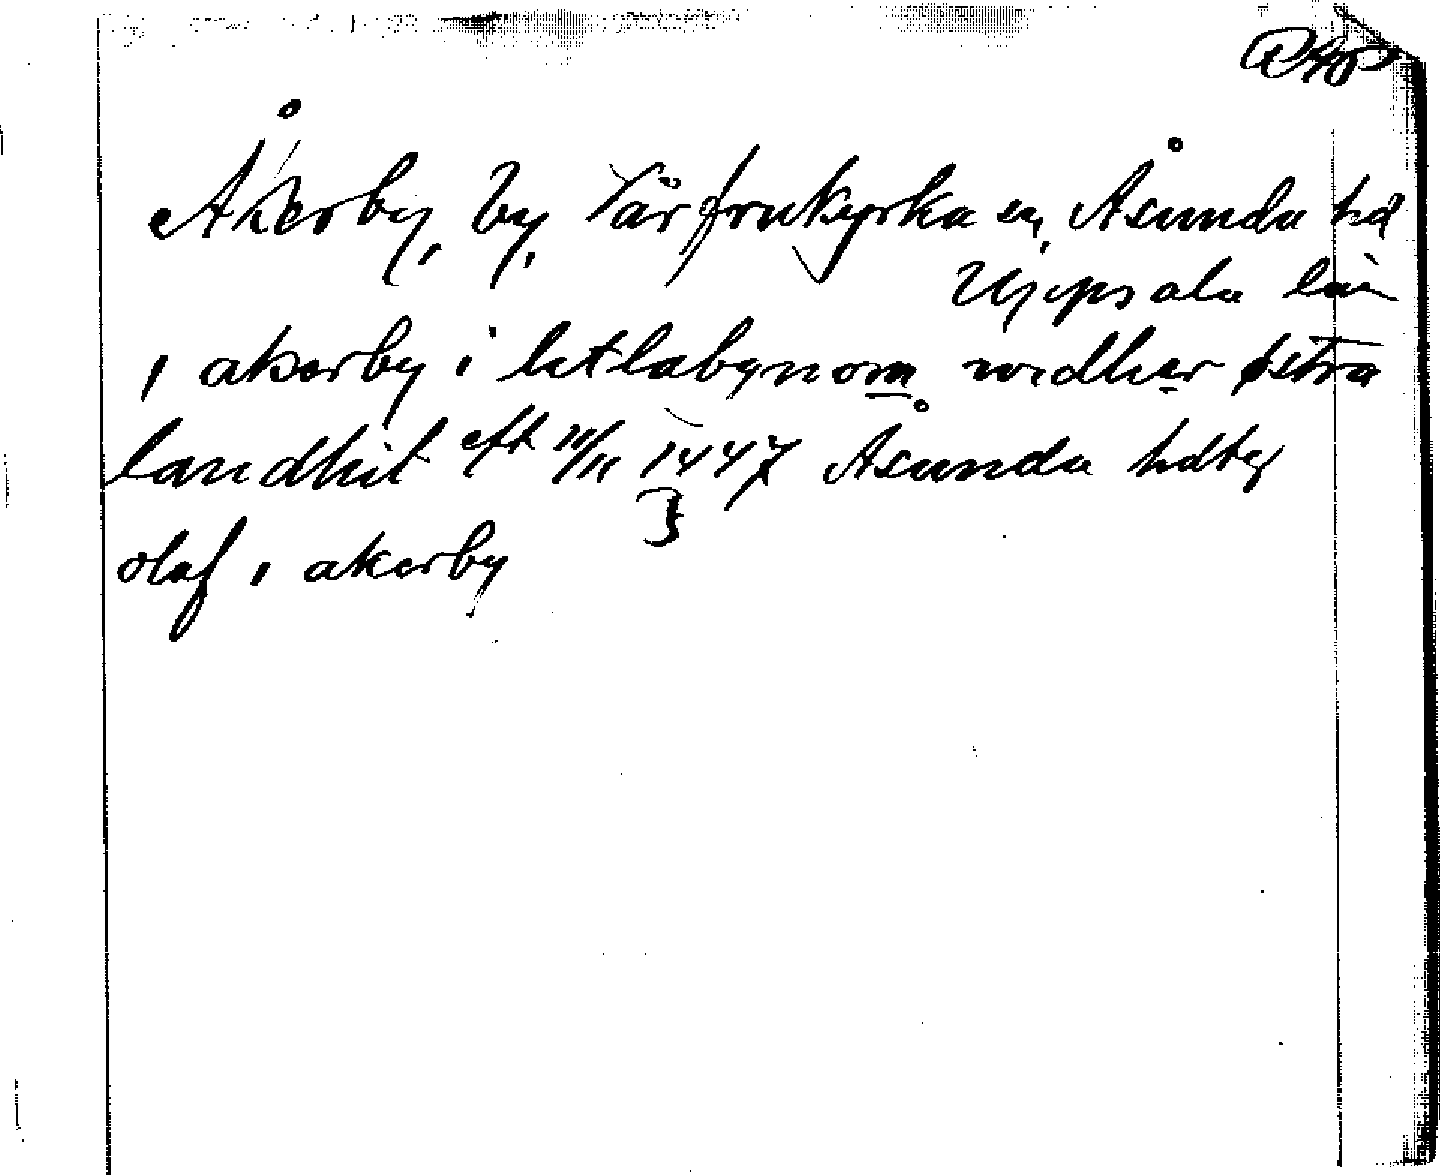 Åkerby, by, Vårfrukyrka sn, Åsunda hd
Uppsala län
i akerby i litlabynom widher østra
landhit eft 11/11 1447 Åsunda hdtg
olaf i akerby